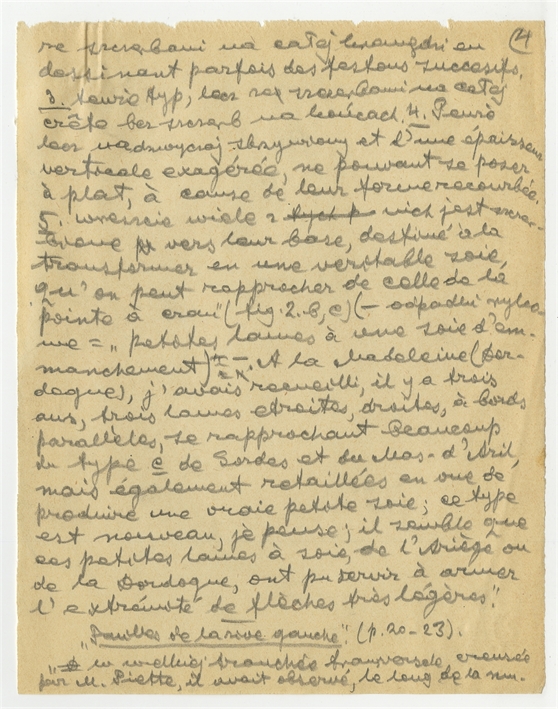 4
re szczerbami na całej krawędzi en
dessinant parfois des festons successifs.
3. Tenże typ, lecz ze szczerbami na całej
crête bez szczerb na końcach. 4. Pewne
lecz nadzwyczaj et d'une épaisseur
verticale exagérée, ne pouvant se poser
à plat, à cause de leur forme recourbée.
5. wreszcie wiele z nich jest szczer-
bione vers leur base, destiné à la
transformer en une véritable soie,
qu'on peut rapprocher de celle de la
pointe à cran" (fig. 2. b, c) (— odpadki
we = "petites lames à une soie d'em-
manchement). A la Madeleine (Dor-
dogne), j'avais recueilli, il y a trois
ans, trois lames étroites, droites, à bords
parallèles, se rapprochant beaucoup
du type c de Sordes et du Mas-d'Azil,
mais également retaillées en vue de
produire une vraie petite soie; ce type
est nouveau, je pense; il semble que
ces petites lames à soie, de l'Ariège ou
de la Dordogne, ont pu servir à armer
l'extrémité de flèches très légères."
"Fouilles de la rive gauche". (p. 20-23).
"W wielkiej tranchée transversale creusée
par M. Piette, il avait observé, le long de la mu-